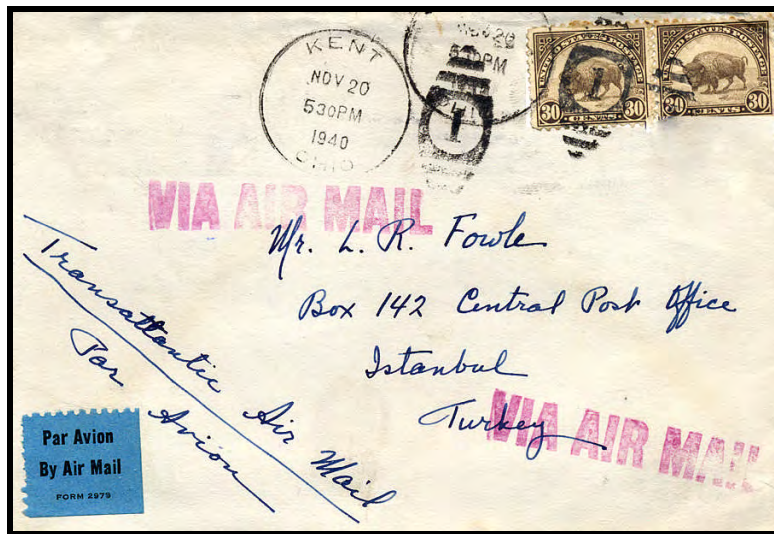 KENT
NOV 20
530PM
1940
OHIO
NOV 20
530PM
1
UNITED STATES POSTAGE
30 30
CENTS
1
UNITED STATES POSTAGE
30 30
CENTS
VIA AIR MAIL
Mr. L. R. Fowle
Box 142 Central Post Office
Istanbul
Turkey
VIA AIR MAIL
Transatlantic Air Mail
Par Avion
Par Avion
By Air Mail
FORM 2979